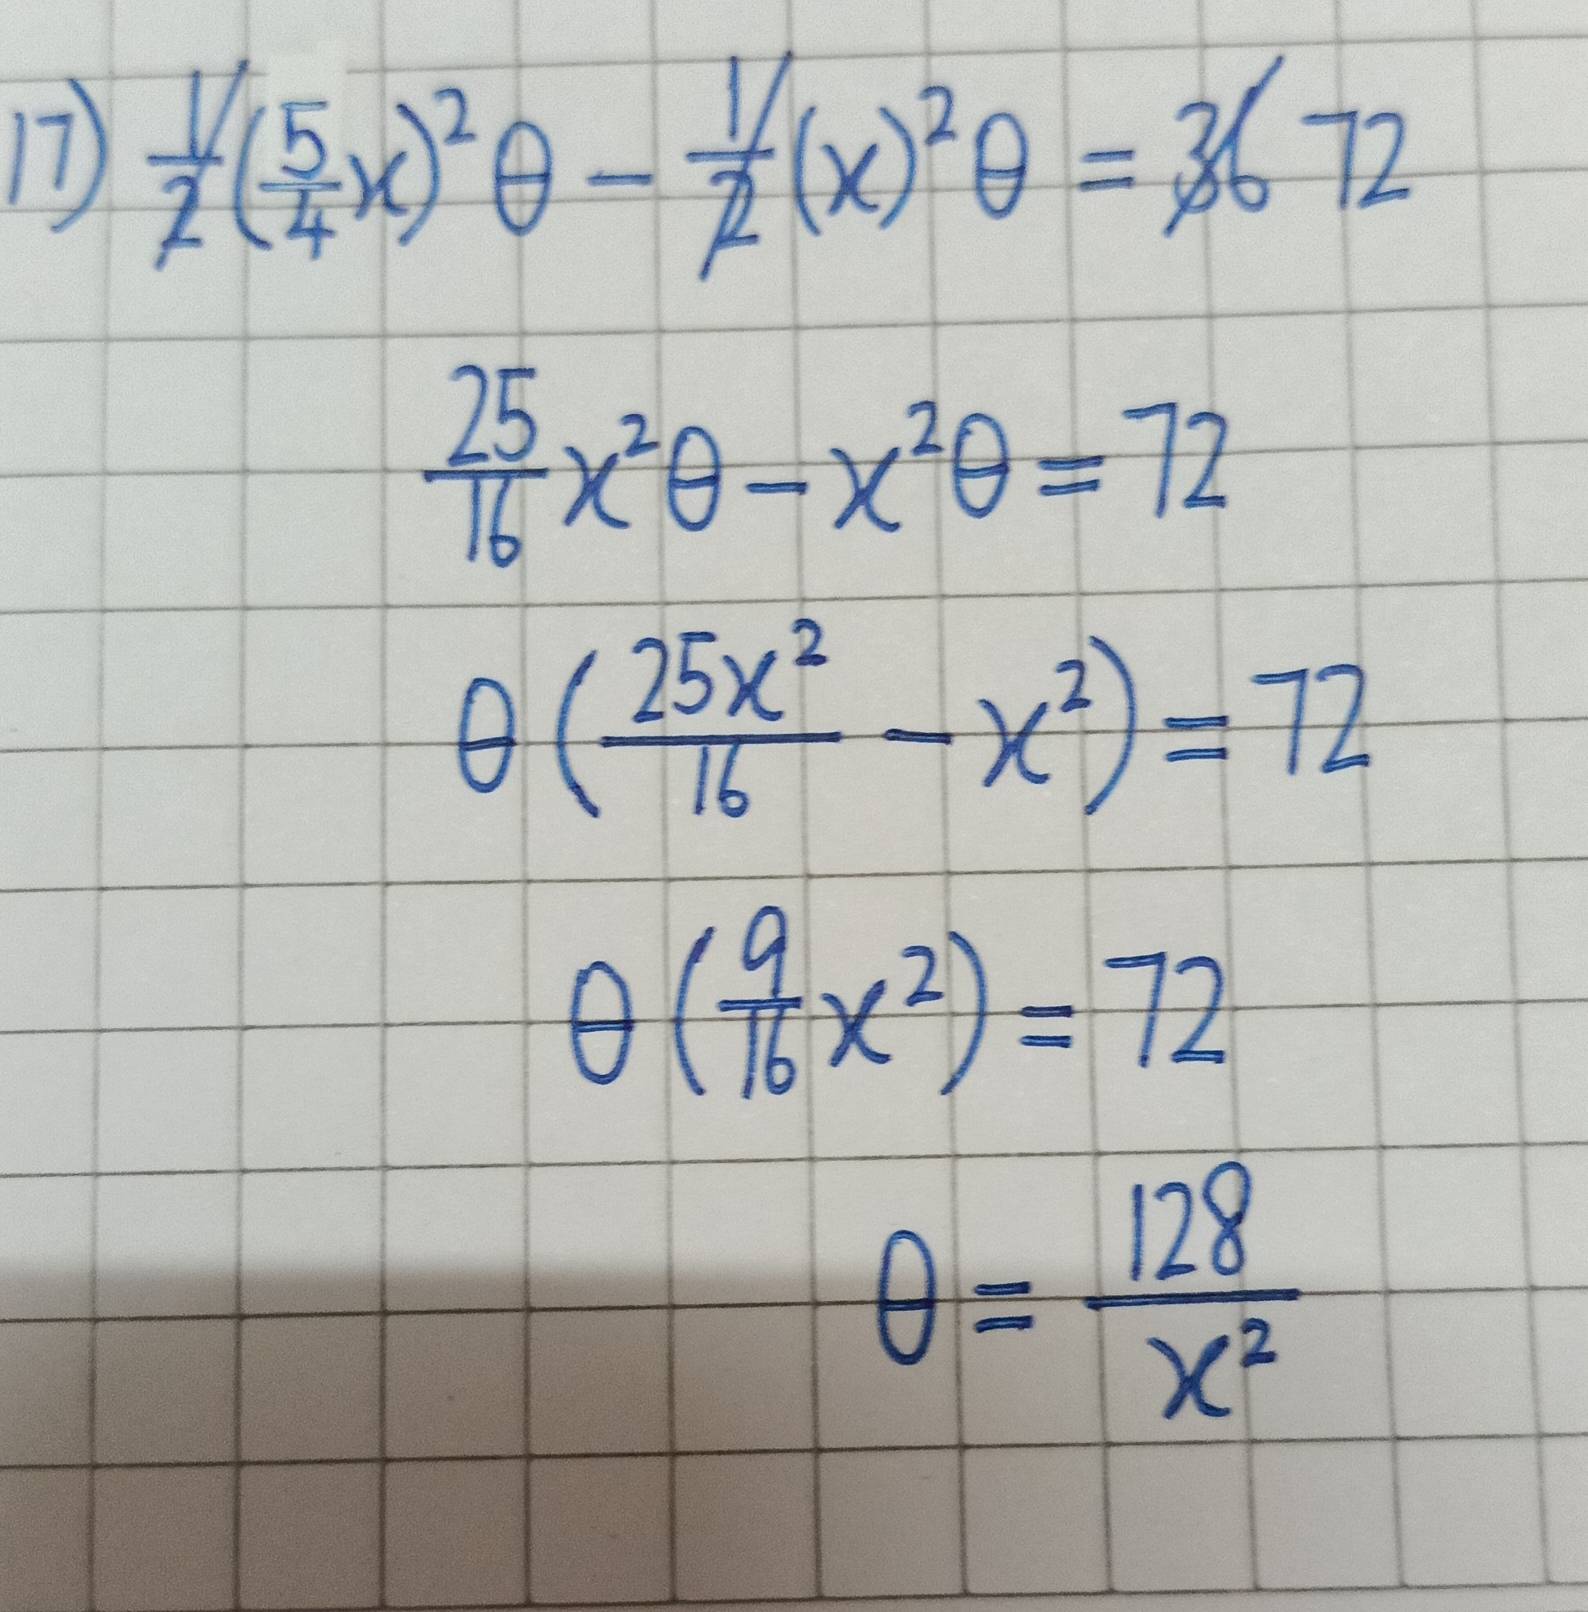 17) 1/2(5/4 x)²θ − 1/2(x)²θ = 36 72
25/16 x²θ − x²θ = 72
θ(25x²/16 − x²) = 72
θ(9/16 x²) = 72
θ = 128/x²